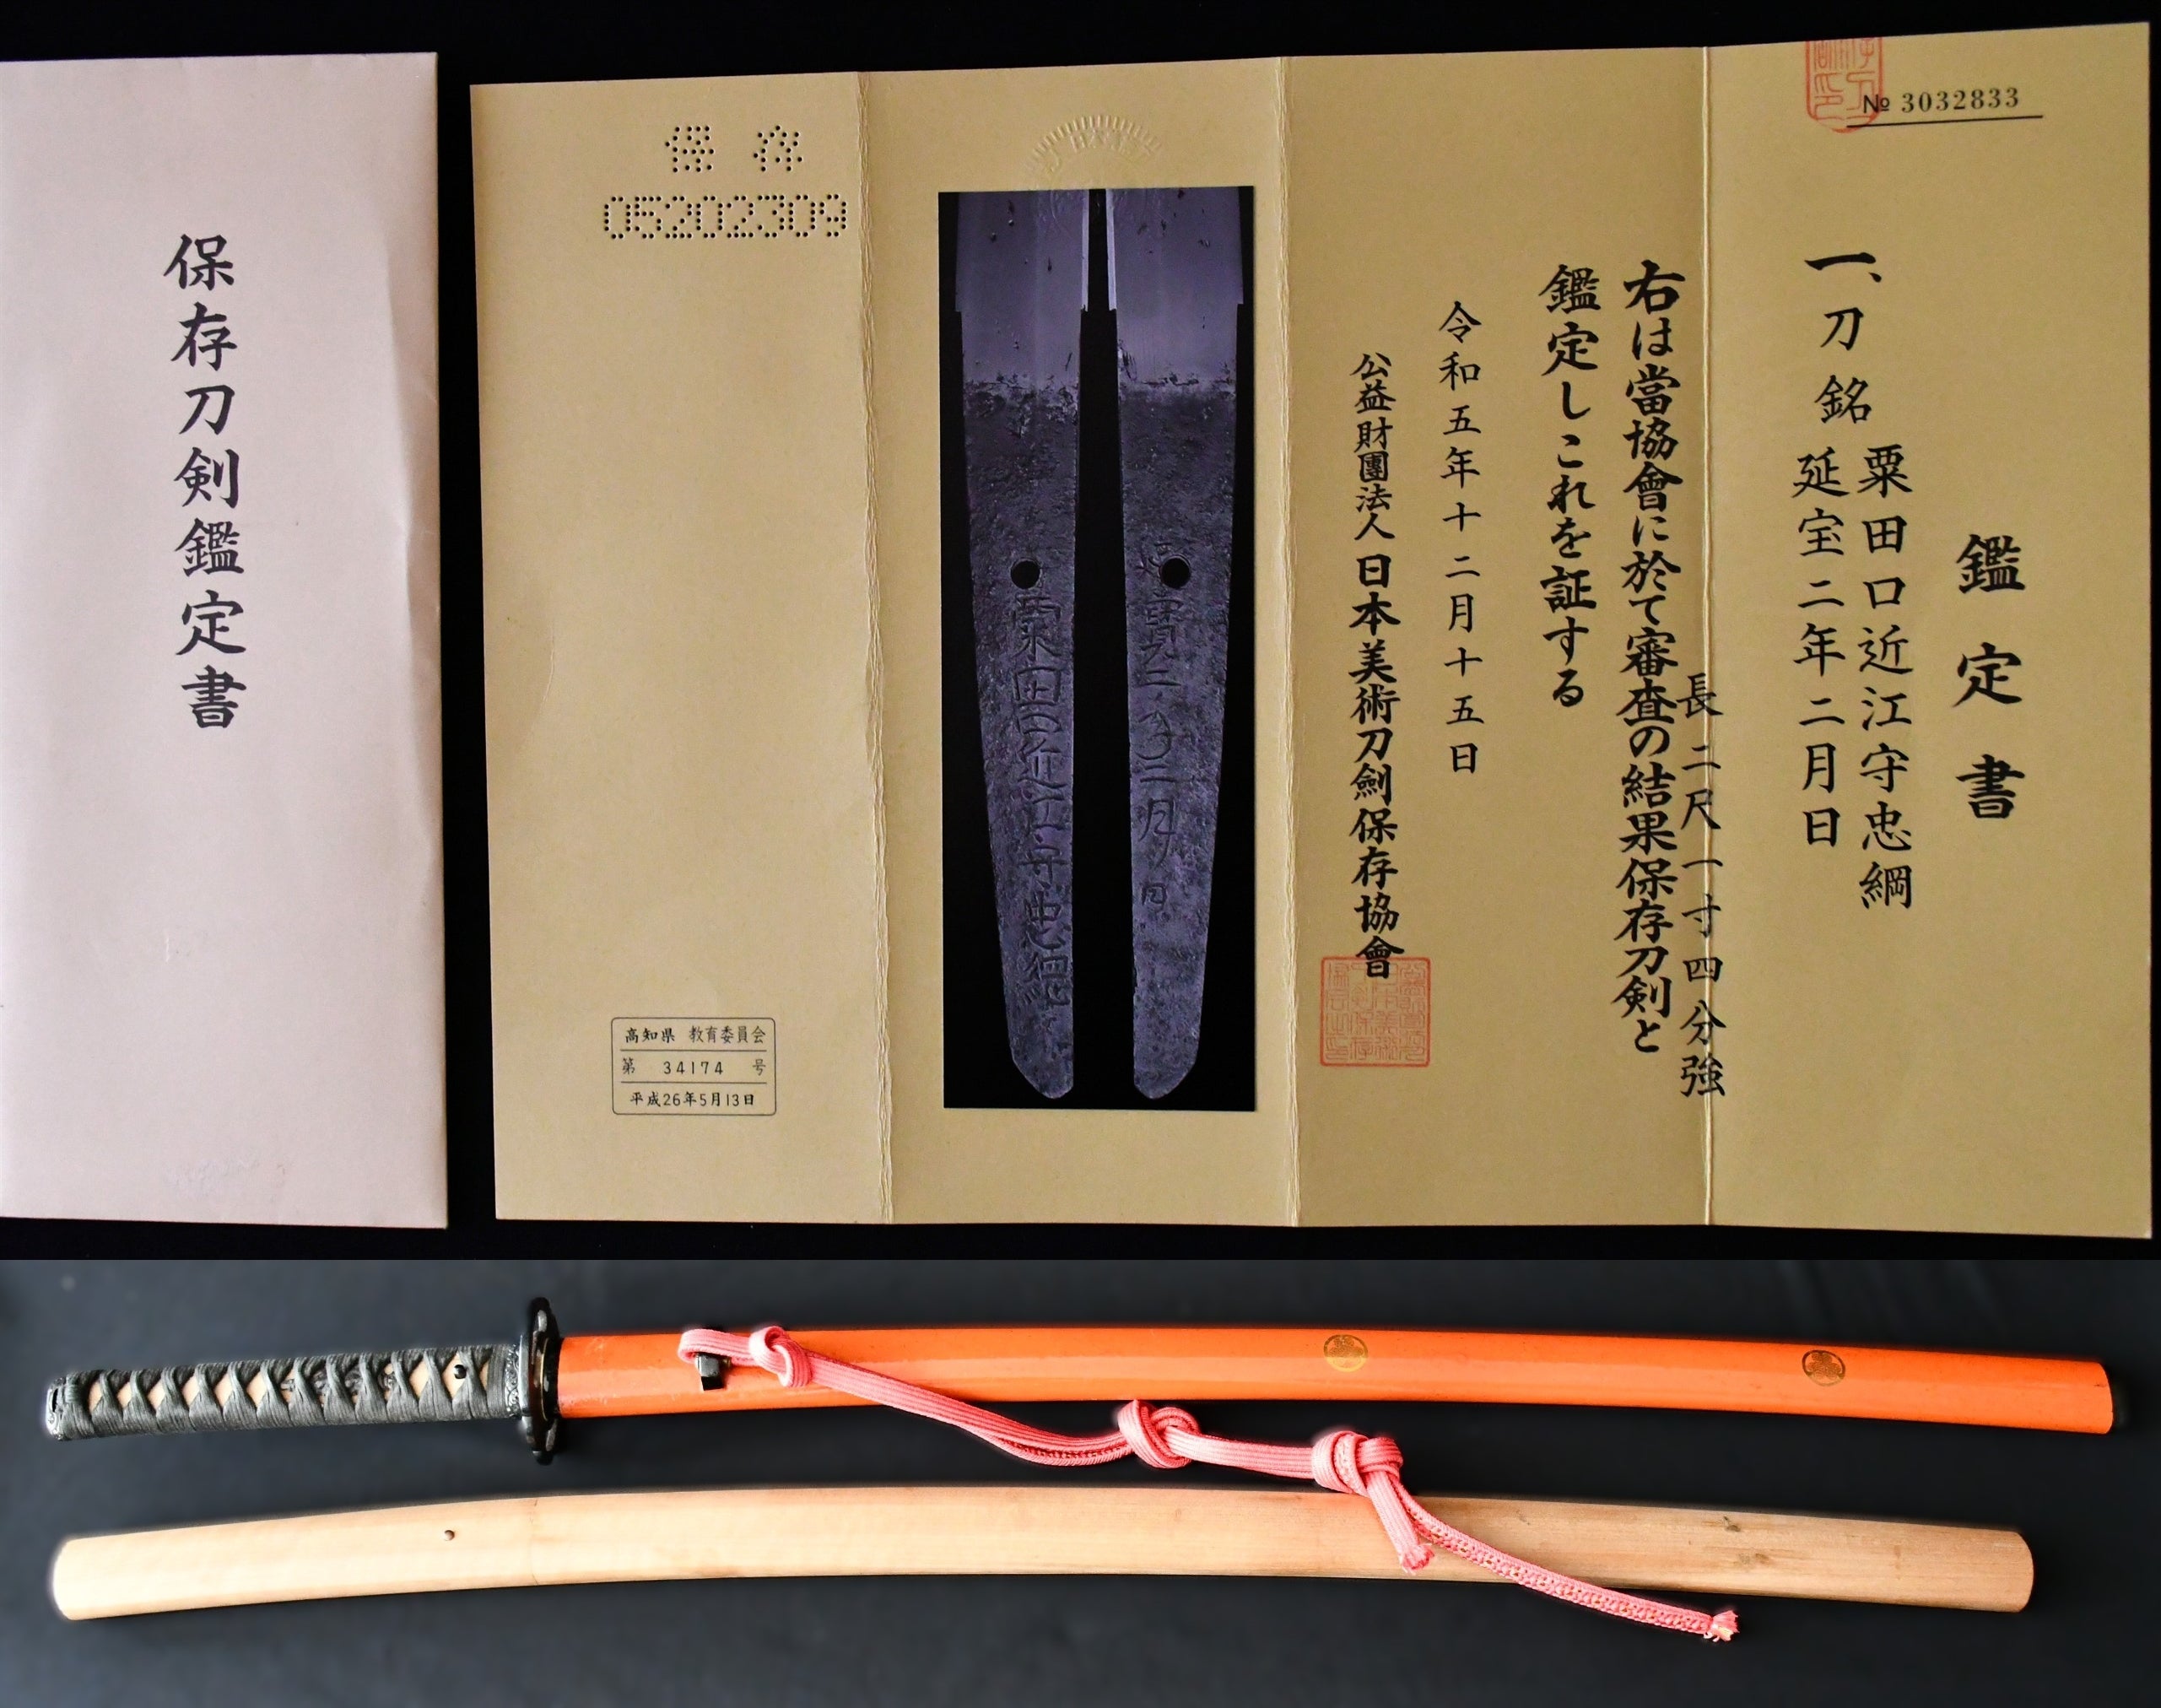 保存刀剣鑑定書
№ 3032833
鑑定書
一、刀 銘 粟田口近江守忠綱
延宝二年二月日
長 二尺一寸四分強
右は當協會に於て審査の結果保存刀剣と
鑑定しこれを証する
令和五年十二月十五日
公益財團法人 日本美術刀劍保存協會
粟田口近江守忠綱
寳二年二月日
保存
05202309
高知県 教育委員会
第 34174 号
平成26年5月13日